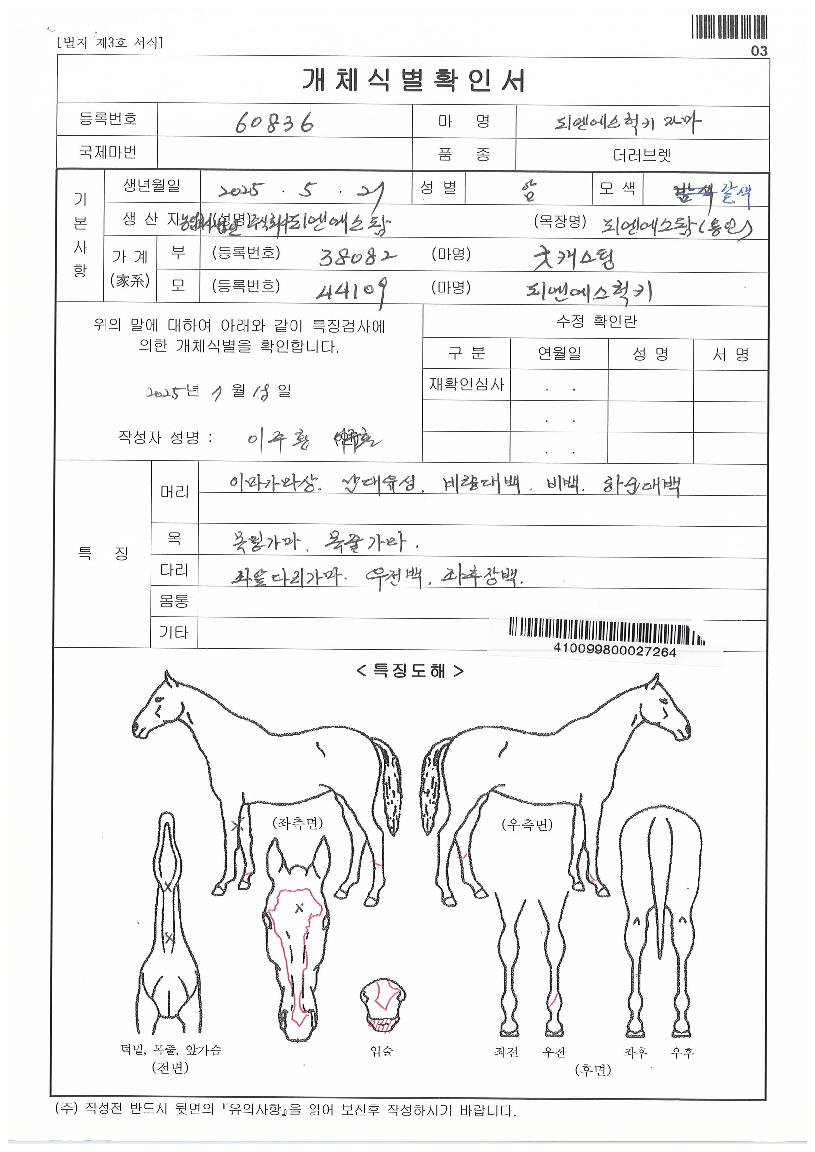 [별지 제3호 서식]
03
개체식별확인서
등록번호 60836 마 명 피엔에스럭키 자마
국제마번 품 종 더러브렛
기본사항
생년월일 2025 . 5 . 21 성 별 암 모 색 갈색
생 산 자 (성명) 피엔에스팜 (목장명) 피엔에스팜(용인)
가 계 (家系) 부 (등록번호) 38082 (마명) 굿캐스팅
모 (등록번호) 44109 (마명) 피엔에스럭키
위의 말에 대하여 아래와 같이 특징검사에
의한 개체식별을 확인합니다.
2025년 7 월 18 일
작성자 성명 : 이주환
수정 확인란
구 분 연월일 성 명 서 명
재확인심사 . .
. .
. .
특 징
머리 이마가마상. 난대유성. 비량대백. 비백. 하순대백
목 목밑가마. 목줄가마.
다리 좌앞다리가마. 우전백. 좌후장백.
몸통
기타
410099800027264
< 특징도해 >
(좌측면) (우측면)
턱밑, 목줄, 앞가슴
(전면)
입술
좌전 우전 좌후 우후
(후면)
(주) 작성전 반드시 뒷면의 『유의사항』을 읽어 보신후 작성하시기 바랍니다.